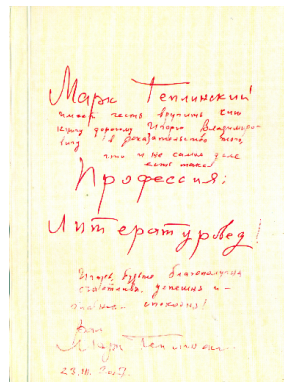 Марк Теплинский
имеет честь вручить сию
книгу дорогому Игорю Владимиро-
вичу в доказательство того,
что и на самом деле
есть такая
Профессия:
Литературовед!
Игорь, будьте благополучны
счастливы, успешны и –
спокойны!
Марк Теплинский
23.III.